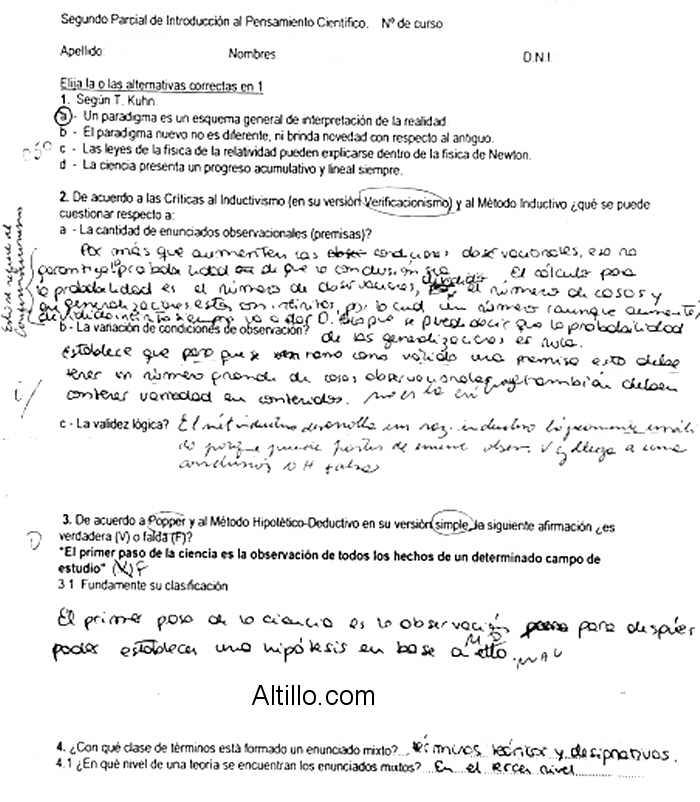 Segundo Parcial de Introducción al Pensamiento Científico. Nº de curso
Apellido: Nombres D.N.I.
Elija la o las alternativas correctas en 1
1. Según T. Kuhn
a - Un paradigma es un esquema general de interpretación de la realidad
b - El paradigma nuevo no es diferente, ni brinda novedad con respecto al antiguo.
c - Las leyes de la física de la relatividad pueden explicarse dentro de la física de Newton.
d - La ciencia presenta un progreso acumulativo y lineal siempre.
2. De acuerdo a las Críticas al Inductivismo (en su versión Verificacionismo) y al Método Inductivo ¿qué se puede
cuestionar respecto a:
a - La cantidad de enunciados observacionales (premisas)?
Por más que aumenten las condiciones observacionales, eso no
garantiza la probabilidad de que la conclusión sea El cálculo para
la probabilidad es el número de observaciones, dividido el número de casos y
en generalizaciones estos son infinitos, por lo cual un número (aunque aumente)
dividido infinito siempre va a dar 0. se puede decir que la probabilidad
de las generalizaciones es nula.
b - La variación de condiciones de observación?
Establece que para que se tome como válido una premisa esto debe
tener un número grande de casos observacionales también deben
contener variedad en contenidos. no es la
c - La validez lógica? El inductivo desarrolla un raz. inductivo lógicamente
do porque puede partir de V y llega a una
conclusión falsa
3. De acuerdo a Popper y al Método Hipotético-Deductivo en su versión simple, la siguiente afirmación ¿es
verdadera (V) o falda (F)?
"El primer paso de la ciencia es la observación de todos los hechos de un determinado campo de
estudio" (V) F
3.1 Fundamente su clasificación
El primer paso de la ciencia es la observación para después
poder establecer una hipótesis en base a ello.
Altillo.com
4. ¿Con qué clase de términos está formado un enunciado mixto? términos teóricos y designativos.
4.1 ¿En qué nivel de una teoría se encuentran los enunciados mixtos? En el tercer nivel